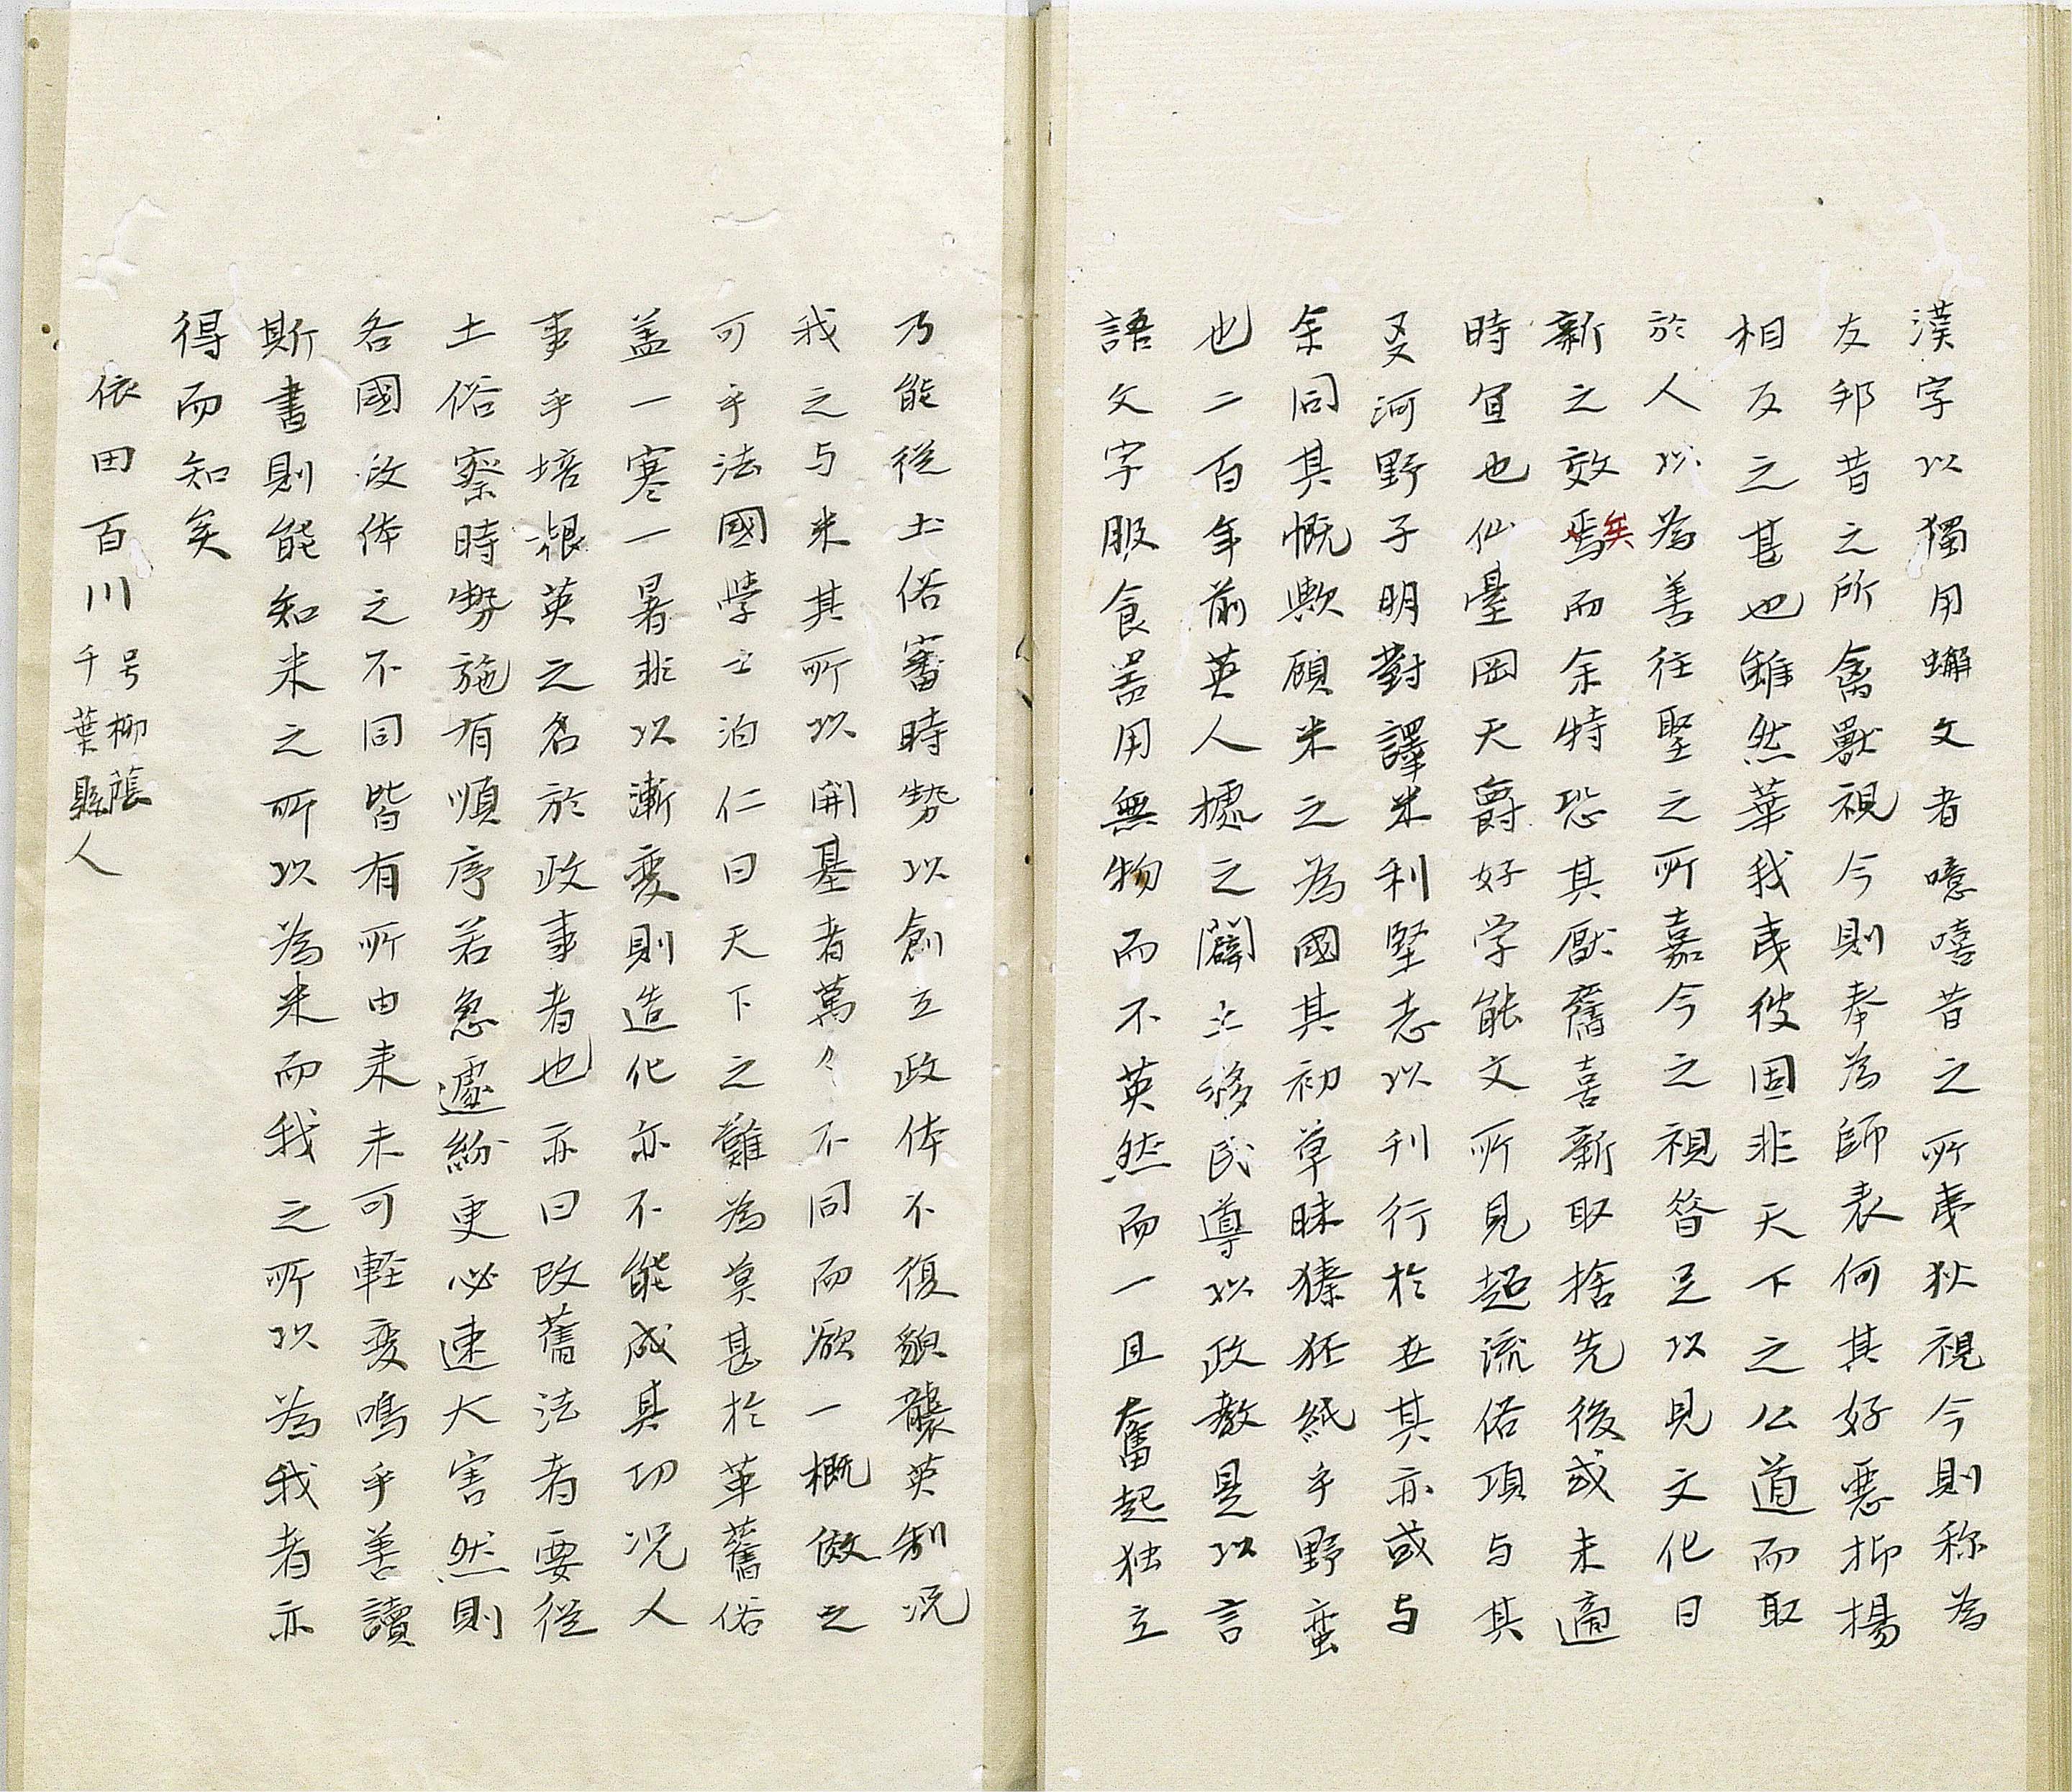 漢字以獨用蠏文者噫嘻昔之所夷狄視今則称為
友邦昔之所禽獸視今則奉為師表何其好悪抑揚
相反之甚也雖然華我夷彼固非天下之公道而取
於人以為善往聖之所嘉今之視昝足以見文化日
新之效焉矣而余特恐其厭舊喜新取捨先後或未適
時宜也仙臺岡天爵好学能文所見超流俗項与其
友河野子明對譯米利堅志以刊行於世其亦或与
余同其慨歟顧米之為國其初草昧獉狉純乎野蛮
也二百年前英人據之闢土移民導以政教是以言
語文字服食噐用無物而不英然而一旦奮起独立
乃能従土俗審時勢以創立政体不復貌襲英制况
我之与米其所以開基者萬々不同而欲一概倣之
可乎法國學士泊仁曰天下之難為莫甚於革舊俗
盖一寒一暑非以漸変則造化亦不能成其功况人
事乎培根英之名於政事者也亦曰改舊法者要従
土俗察時勢施有順序若急遽紛更必速大害然則
各國政体之不同皆有所由来未可軽変嗚乎善讀
斯書則能知米之所以為米而我之所以為我者亦
得而知矣
依田百川
号柳蔭
千葉縣人